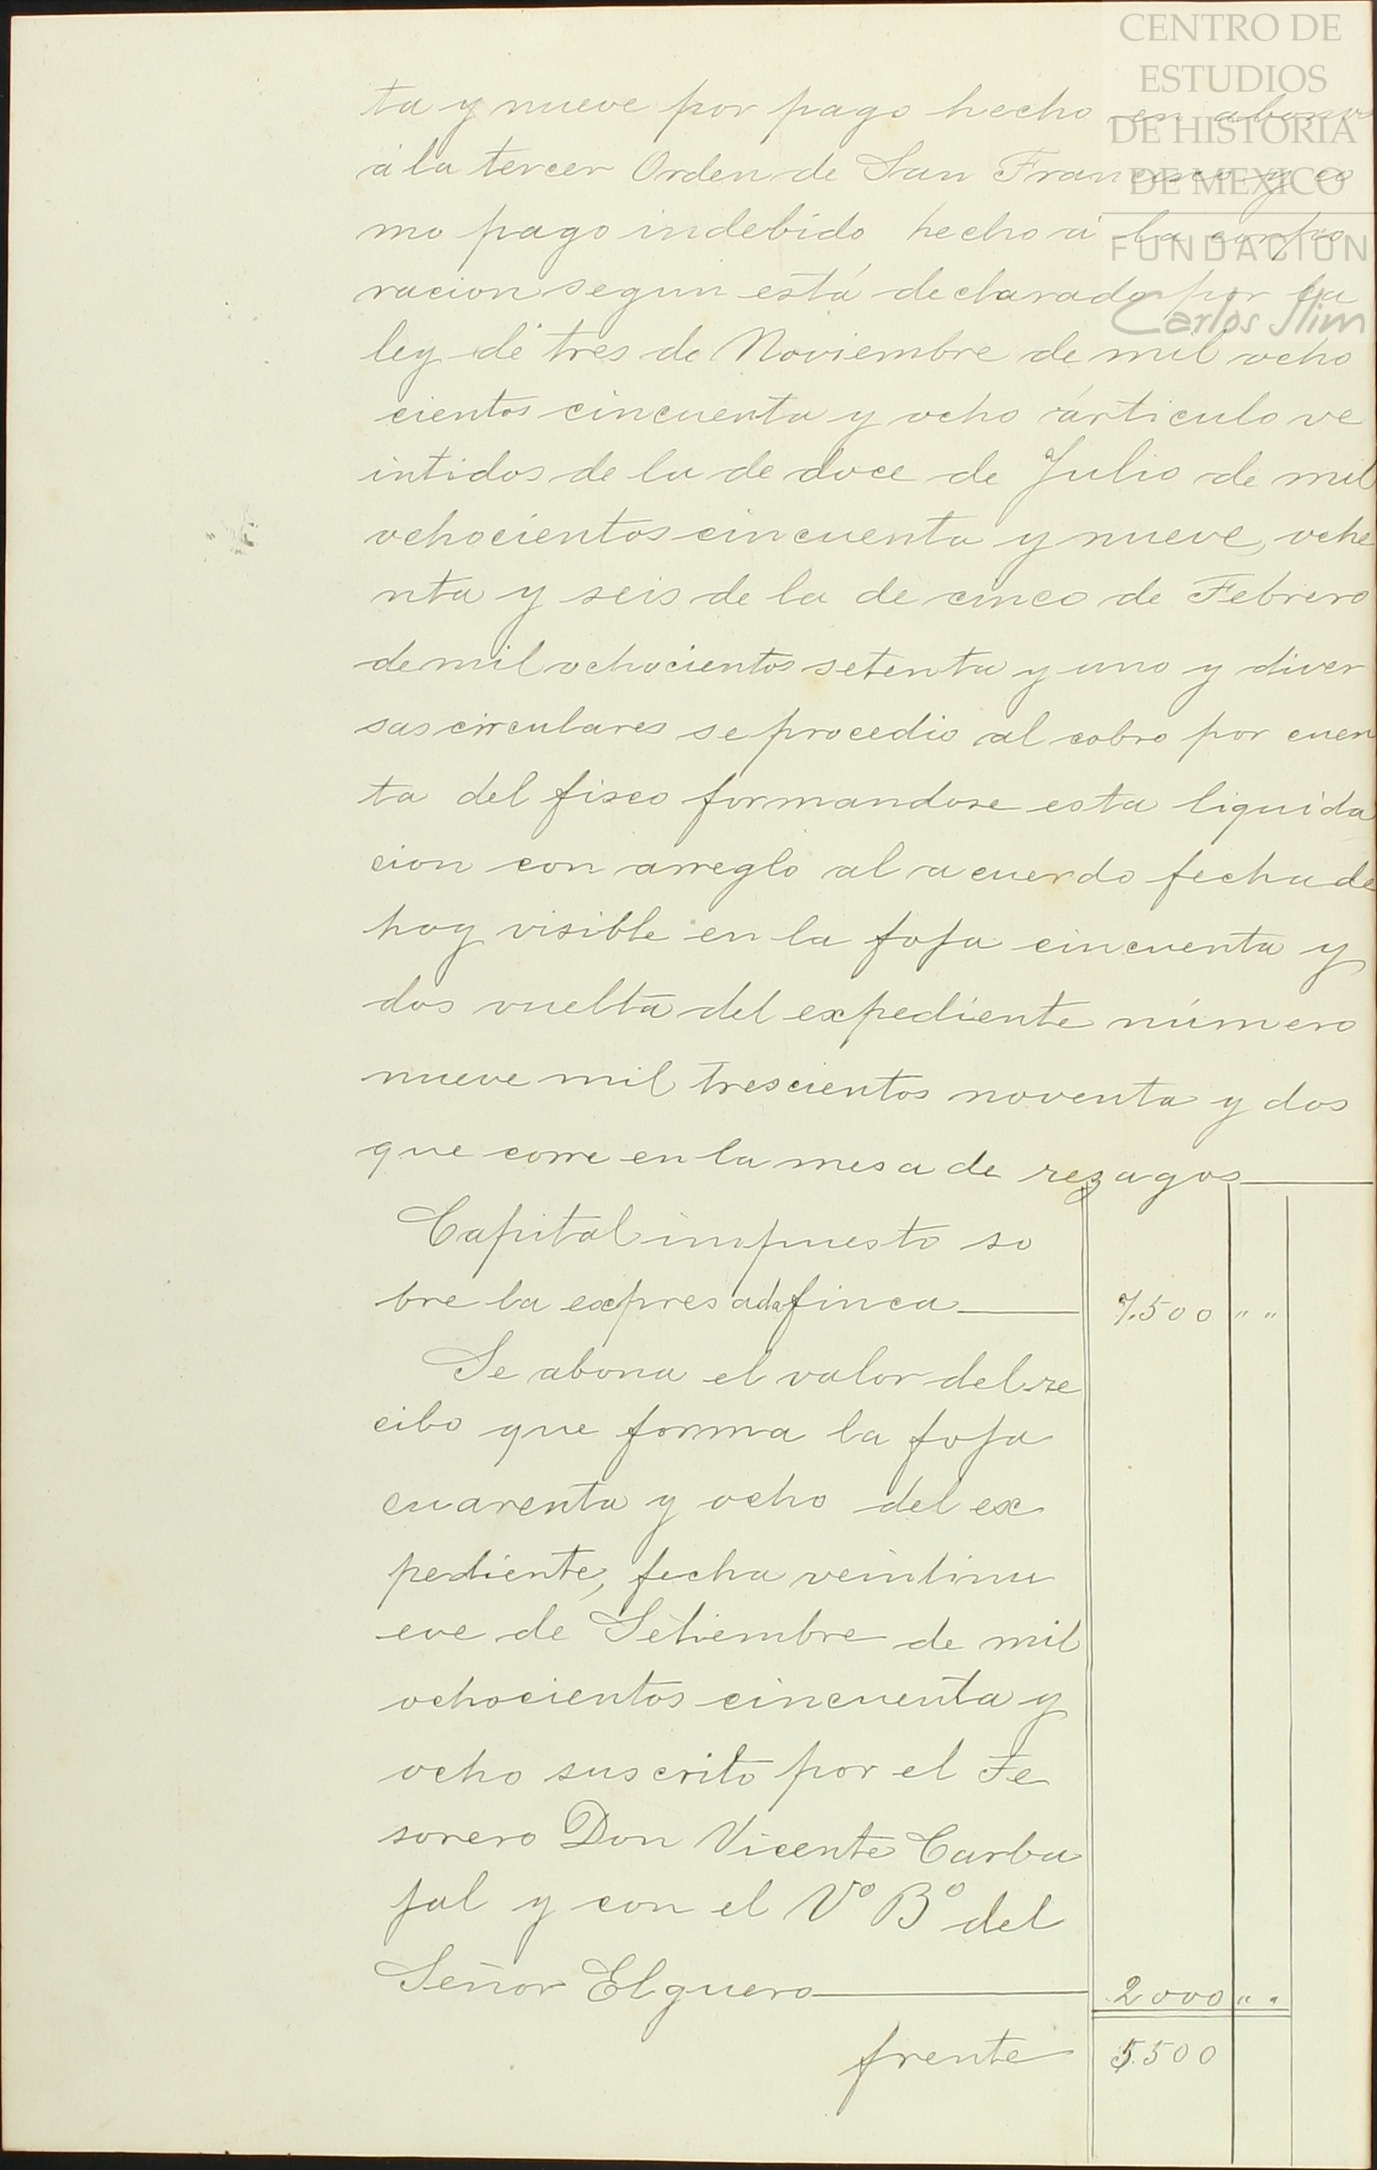 CENTRO DE
ESTUDIOS
DE HISTORIA
DE MEXICO
FUNDACION
Carlos Slim
ta y nueve por pago hecho en abono
á la tercer Orden de San Francisco y co
mo pago indebido, hecho á la corpo
racion segun está declarado por la
ley de tres de Noviembre de mil ocho
cientos cincuenta y ocho árticulo ve
intidos de la de doce de Julio de mil
ochocientos cincuenta y nueve, oche
nta y seis de la de cinco de Febrero
de mil ochocientos setenta y uno y diver
sas circulares se procedio al cobro por cuen
ta del fisco formandose esta liquida
cion con arreglo al acuerdo fecha de
hoy visible en la foja cincuenta y
dos vuelta del expediente número
nueve mil trescientos noventa y dos
que corre en la mesa de rezagos
Capital impuesto so
bre la expresada finca 7.500 " "
Se abona el valor del re
cibo que forma la foja
cuarenta y ocho del ex
pediente, fecha veintinu
eve de Setiembre de mil
ochocientos cincuenta y
ocho suscrito por el Te
sorero Don Vicente Carba
jal y con el Vº Bº del
Señor Elguero 2000 " "
frente 5.500